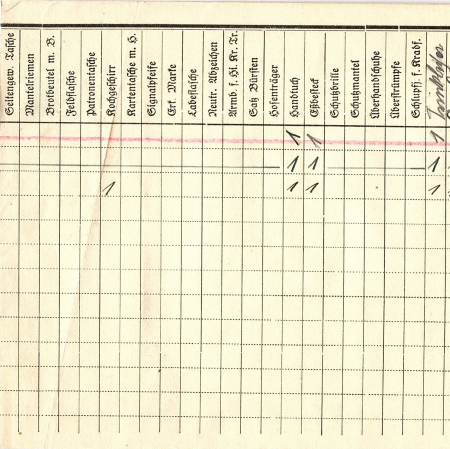 Seitengew. Tasche
Mantelriemen
Brotbeutel m. B.
Feldflasche
Patronentasche
Kochgeschirr
Kartentasche m. H.
Signalpfeife
Erk. Marke
Labeflasche
Neutr. Abzeichen
Armb. f. Hl. Kr. Tr.
Satz Bürsten
Hosenträger
Handtuch
Eßbesteck
Schutzbrille
Schutzmantel
Überhandschuhe
Überstrümpfe
Schlupfj. f. Kradf.
1 1 1
1 1 1
1 1 1 1